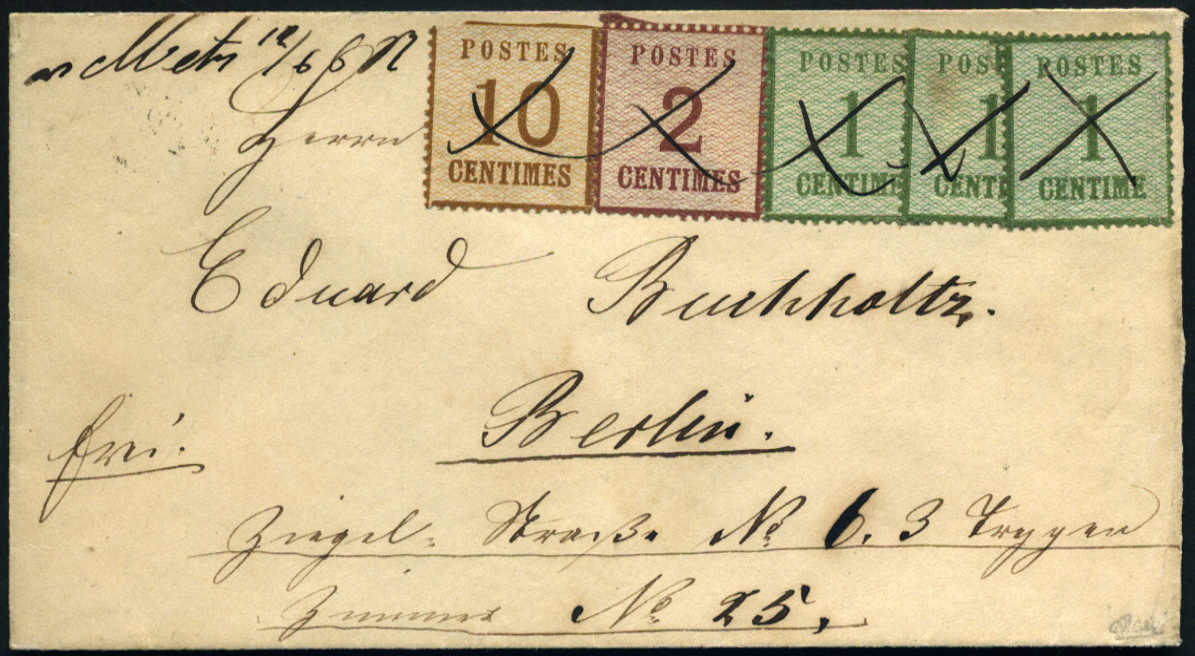 Metz 12/6
POSTES 10 CENTIMES
POSTES 2 CENTIMES
POSTES 1 CENTIME
POS 1 CENTI
POSTES 1 CENTIME
Herrn
Eduard Buchholtz.
Berlin.
frei.
Ziegel-Straße No 6. 3 Treppen
Zimmer No 25,